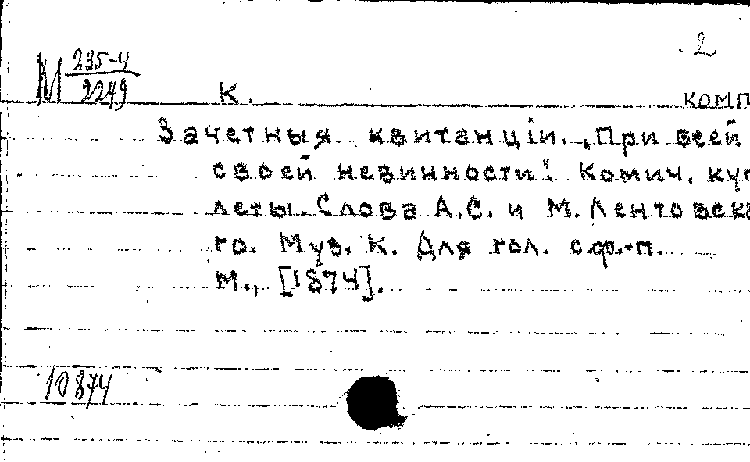 2
М 235-4
2249
К.
комп
Зачетныя квитанціи. „При всей
своей невинности! Комич. куп
леты. Слова А.С. и М. Лентовско
го. Муз. К. Для гол. с ф.-п.
М., [1874].
10874